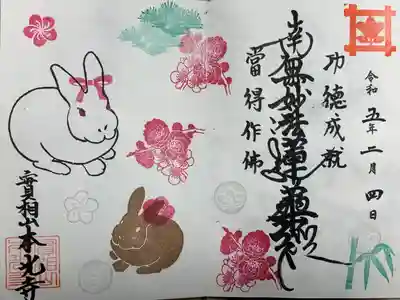 令和五年二月四日
功德成就
南無妙法蓮華經
當得作佛
實相山本光寺